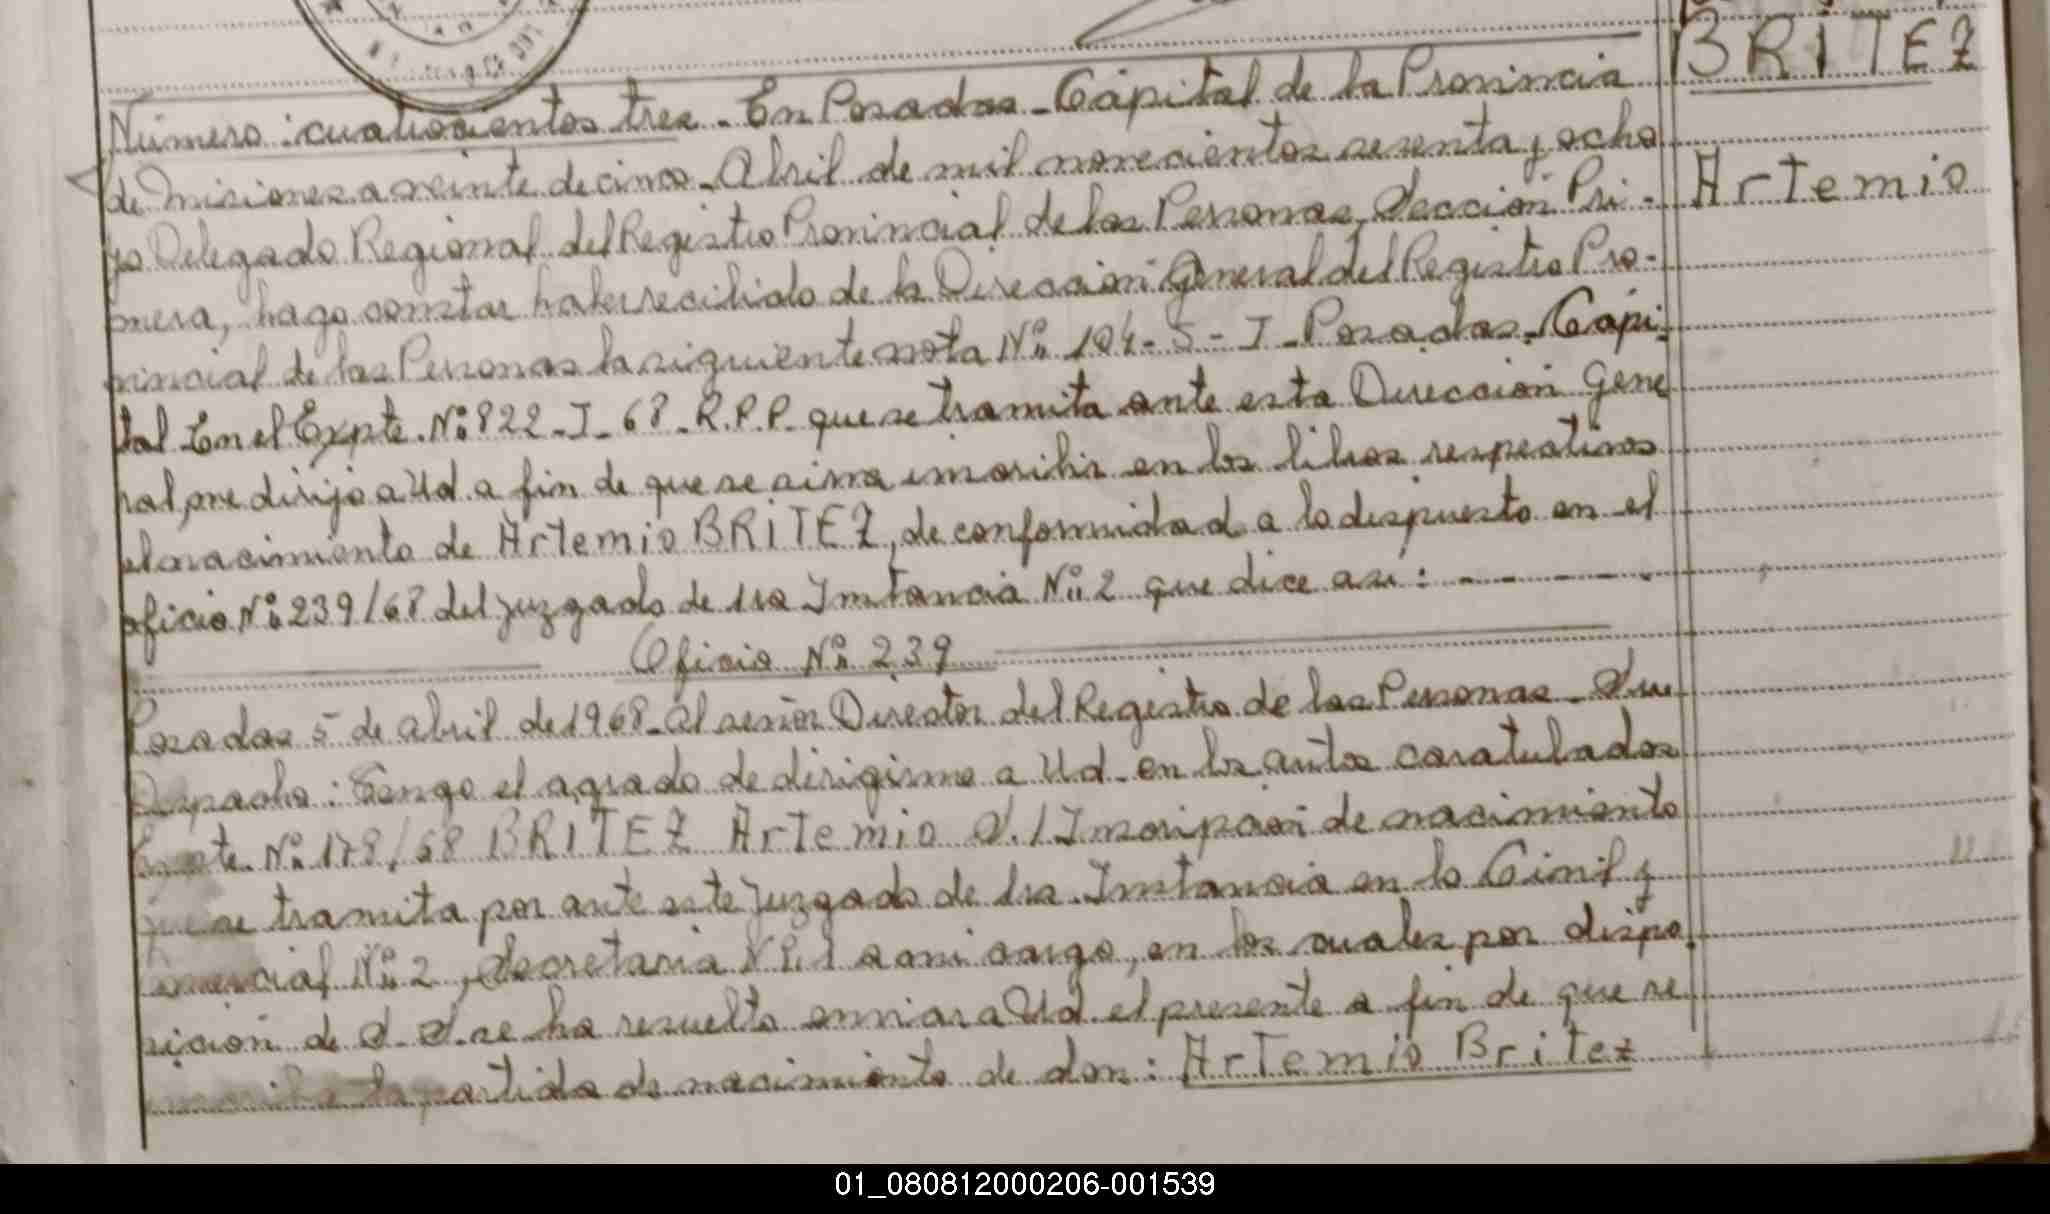 BRITEZ
Artemio
Número: cuatrocientos tres. En Posadas - Capital de la Provincia
de Misiones a veinte de cinco - Abril de mil novecientos sesenta y ocho
yo Delegado Regional del Registro Provincial de las Personas, Sección Pri-
mera, hago constar haber recibido de la Dirección General del Registro Pro-
vincial de las Personas la siguiente nota Nº 104-5-I-Posadas - Capi-
tal En el Expte. Nº 822-I-68-R.P.P. que se tramita ante esta Dirección Gene
ral, me dirijo a Ud. a fin de que se sirva inscribir en los libros respectivos
el nacimiento de Artemio BRITEZ, de conformidad a lo dispuesto en el
oficio Nº 239/68 del juzgado de 1ra Instancia Nº 2 que dice asi:
Oficio Nº 239
Posadas 5 de abril de 1968 - Al señor Director del Registro de las Personas - Su
Despacho: Tengo el agrado de dirigirme a Ud. en los autos caratulados
Expte. Nº 178/68 BRITEZ Artemio S./Inscripción de nacimiento
que se tramita por ante este juzgado de 1ra. Instancia en lo Civil y
Comercial Nº 2, Secretaria Nº 1 a mi cargo, en los cuales por dispo
sición de S. S. se ha resuelto enviar a Ud. el presente a fin de que se
inscriba la partida de nacimiento de don: Artemio Britez
01_080812000206-001539